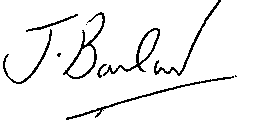 J. Barlow